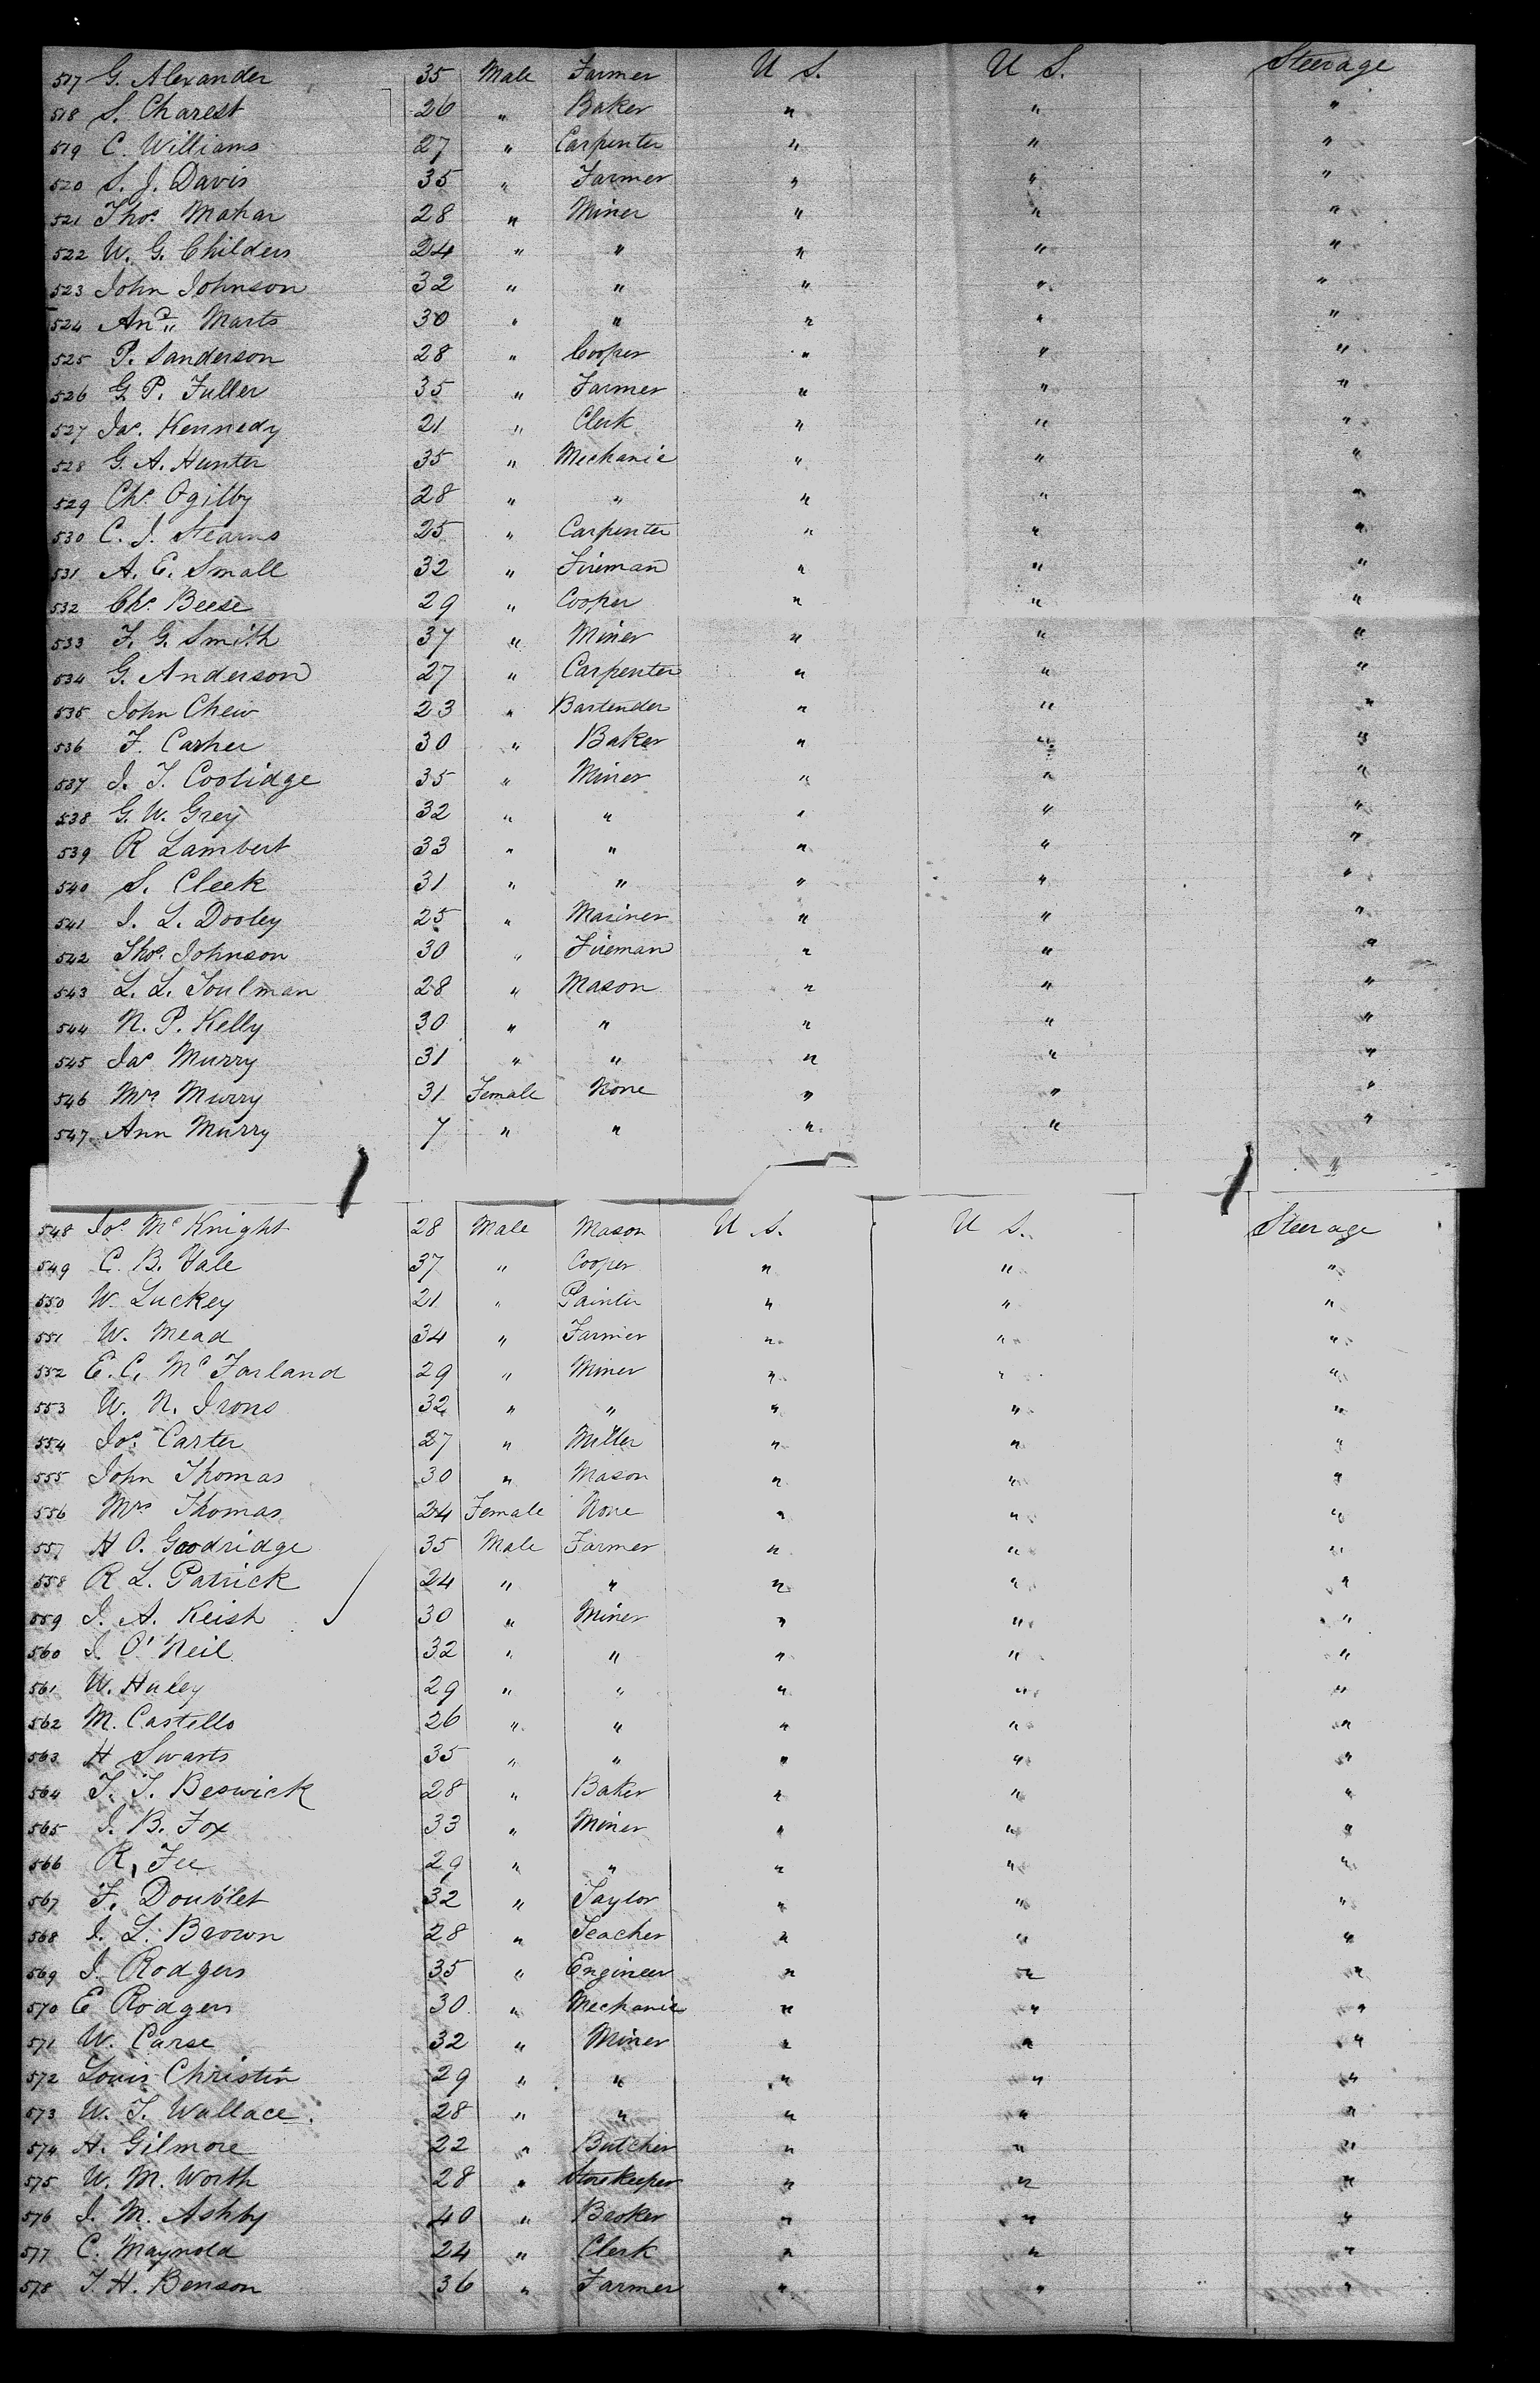 517 G. Alexander 35 Male Farmer U S. U S. Steerage
518 S. Charest 26 " Baker " " "
519 C. Williams 27 " Carpenter " " "
520 S. J. Davis 35 " Farmer " " "
521 Thos. Mahar 28 " Miner " " "
522 W. G. Childers 24 " " " " "
523 John Johnson 32 " " " " "
524 And. Marts 30 " " " " "
525 P. Sanderson 28 " Cooper " " "
526 G. P. Fuller 35 " Farmer " " "
527 Jas. Kennedy 21 " Clerk " " "
528 G. A. Hunter 35 " Mechanic " " "
529 Chs. Ogilby 28 " " " " "
530 C. J. Stearns 25 " Carpenter " " "
531 A. E. Small 32 " Fireman " " "
532 Chs. Beese 29 " Cooper " " "
533 F. G. Smith 37 " Miner " " "
534 G. Anderson 27 " Carpenter " " "
535 John Chew 23 " Bartender " " "
536 F. Carher 30 " Baker " " "
537 J. T. Coolidge 35 " Miner " " "
538 G. W. Grey 32 " " " " "
539 R Lambert 33 " " " " "
540 S. Cleek 31 " " " " "
541 J. L. Dooley 25 " Mariner " " "
542 Thos. Johnson 30 " Fireman " " "
543 L. L. Toulman 28 " Mason " " "
544 N. P. Kelly 30 " " " " "
545 Jas Murry 31 " " " " "
546 Mrs Murry 31 Female None " " "
547 Ann Murry 7 " " " " "
"
548 Jos. McKnight 28 Male Mason U S. U S. Steerage
549 C. B. Hale 37 " Cooper " " "
550 W. Luckey 21 " Painter " " "
551 W. Mead 34 " Farmer " " "
552 E. C. McFarland 29 " Miner " " "
553 W. N. Irons 32 " " " " "
554 Jos. Carter 27 " Miller " " "
555 John Thomas 30 " Mason " " "
556 Mrs Thomas 24 Female None " " "
557 H O. Goodridge 35 Male Farmer " " "
558 R L. Patrick 24 " " " " "
559 J. A. Keish 30 " Miner " " "
560 J. O'Neil 32 " " " " "
561 W. Haley 29 " " " " "
562 M. Castello 26 " " " " "
563 H Swarts 35 " " " " "
564 T. T. Beswick 28 " Baker " " "
565 J. B. Fox 33 " Miner " " "
566 R. Fee 29 " " " " "
567 F. Doublet 32 " Taylor " " "
568 J. L. Brown 28 " Teacher " " "
569 J. Rodgers 35 " Engineer " " "
570 E Rodgers 30 " Mechanic " " "
571 W. Carse 32 " Miner " " "
572 Louis Christin 29 " " " " "
573 W. T. Wallace. 28 " " " " "
574 H. Gilmore 22 " Butcher " " "
575 W. M. Worth 28 " Storekeeper " " "
576 J. M. Ashby 40 " Broker " " "
577 C. Maynold 24 " Clerk " " "
578 T. H. Benson 36 " Farmer " " "